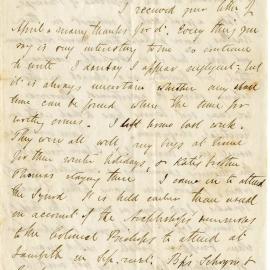 I received your letter of
April & many thanks for it. Every thing you
say is very interesting to me so continue
to write I dare say I appear negligent - but
it is always uncertain whether any
time can be found where the time for
worthy ones. I left home last week.
They were all well, my boys at home
for their winter holidays, & Kate's brother
Thomas staying there I came in to attend
the Synod It is held earlier than usual
on account of the Archbishop's summons
to the Colonial Bishops to attend at
Lambeth in Sep. next. Bps Selwyn &